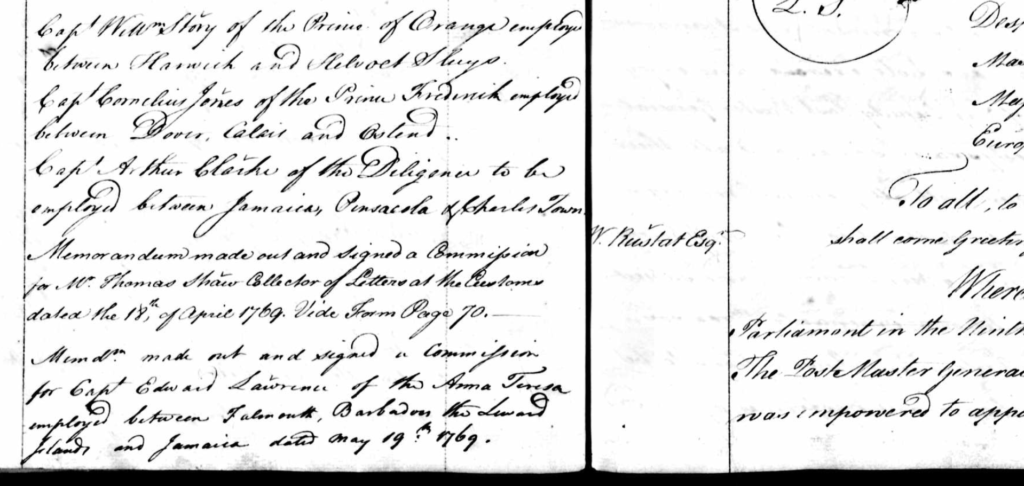 Capt Willm Story of the Prince of Orange employd
between Harwich and Helvoet Sluys.
Capt Cornelius Jones of the Prince Frederick employed
between Dover, Calais and Ostend..
Capt Arthur Clarke of the Diligence to be
employed between Jamaica, Pensacola & Charles Town.
Memorandum made out and signed a Commission
for Mr. Thomas Shaw Collector of Letters at the Customs
dated the 18th of April 1769. Vide Form Page 70.
Memdm made out and signed a Commission
for Capt Edward Lawrence of the Anna Teresa
employed between Falmouth, Barbadoes the Leward
Islands and Jamaica dated May 19th 1769.
L. S.
Desp
Ma
Maj
Europ
To all, to
W. Rustat Esqr
shall come Greetin
Where
Parliament in the Ninth
The Post Master Genera
was impowered to appo